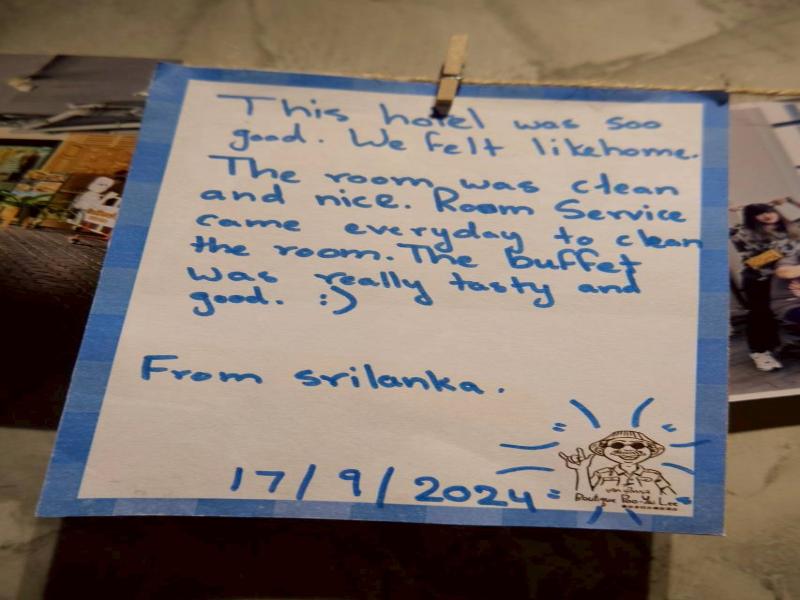 This hotel was soo
good. We felt likehome.
The room was clean
and nice. Room Service
came everyday to clean
the room. The buffet
was really tasty and
good. :)
From srilanka.
17/9/2024
Boutique Poo-Yai Lee